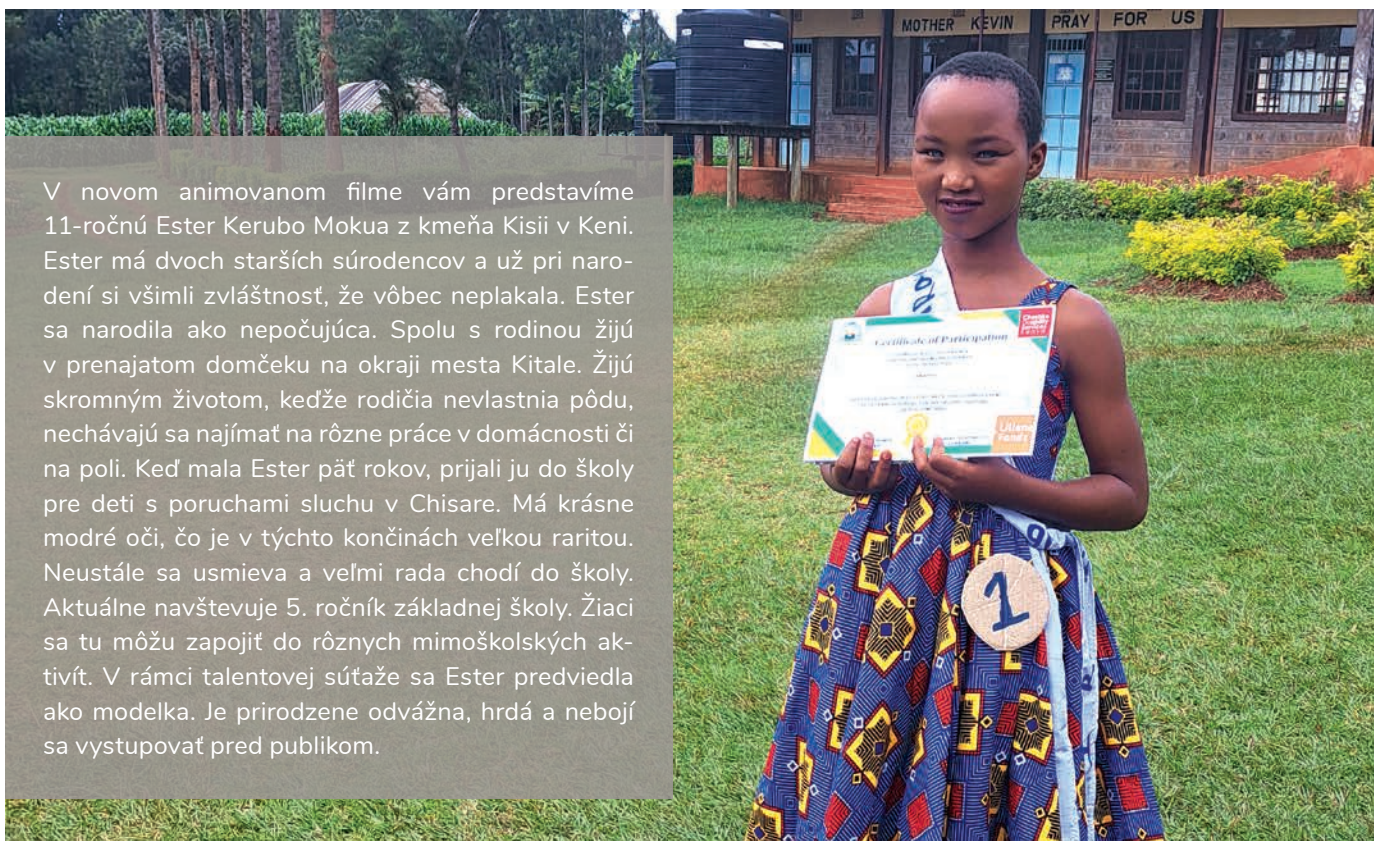 MOTHER KEVIN PRAY FOR US
V novom animovanom filme vám predstavíme
11-ročnú Ester Kerubo Mokua z kmeňa Kisii v Keni.
Ester má dvoch starších súrodencov a už pri naro-
dení si všimli zvláštnosť, že vôbec neplakala. Ester
sa narodila ako nepočujúca. Spolu s rodinou žijú
v prenajatom domčeku na okraji mesta Kitale. Žijú
skromným životom, keďže rodičia nevlastnia pôdu,
nechávajú sa najímať na rôzne práce v domácnosti či
na poli. Keď mala Ester päť rokov, prijali ju do školy
pre deti s poruchami sluchu v Chisare. Má krásne
modré oči, čo je v týchto končinách veľkou raritou.
Neustále sa usmieva a veľmi rada chodí do školy.
Aktuálne navštevuje 5. ročník základnej školy. Žiaci
sa tu môžu zapojiť do rôznych mimoškolských ak-
tivít. V rámci talentovej súťaže sa Ester predviedla
ako modelka. Je prirodzene odvážna, hrdá a nebojí
sa vystupovať pred publikom.
Certificate of Participation
Liliane
Fonds
1